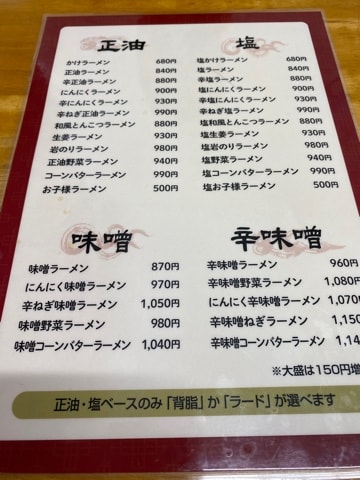 正油
かけラーメン 680円
正油ラーメン 840円
辛正油ラーメン 880円
にんにくラーメン 900円
辛にんにくラーメン 930円
辛ねぎ正油ラーメン 990円
和風とんこつラーメン 880円
生姜ラーメン 930円
岩のりラーメン 980円
正油野菜ラーメン 940円
コーンバターラーメン 990円
お子様ラーメン 500円
塩
塩かけラーメン 680円
塩ラーメン 840円
辛塩ラーメン 880円
塩にんにくラーメン 900円
辛塩にんにくラーメン 930円
辛ねぎ塩ラーメン 990円
塩和風とんこつラーメン 880円
塩生姜ラーメン 930円
塩岩のりラーメン 980円
塩野菜ラーメン 940円
塩コーンバターラーメン 990円
塩お子様ラーメン 500円
味噌
味噌ラーメン 870円
にんにく味噌ラーメン 970円
辛ねぎ味噌ラーメン 1,050円
味噌野菜ラーメン 980円
味噌コーンバターラーメン 1,040円
辛味噌
辛味噌ラーメン 960円
辛味噌野菜ラーメン 1,080円
にんにく辛味噌ラーメン 1,070
辛味噌ねぎラーメン 1,150
辛味噌コーンバターラーメン 1,14
※大盛は150円増
正油・塩ベースのみ「背脂」か「ラード」が選べます